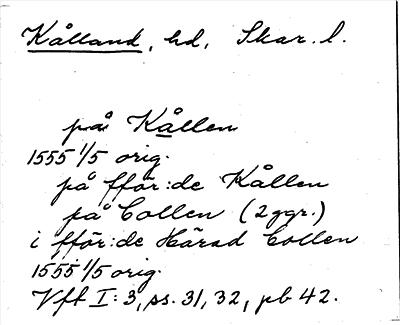 Kålland, hd, Skar. l.
på Kållen
1555 1/5 orig.
på fför:de Kållen
på Collen (2 ggr.)
i fför:de Härad Collen
1555 1/5 orig.
Vfl I:3, ss. 31, 32, pb 42.